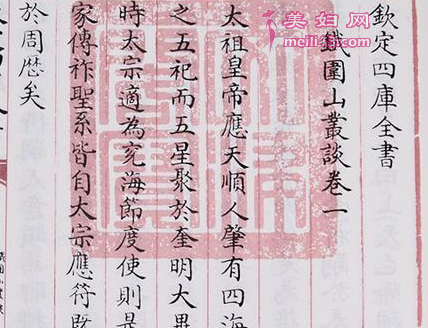 欽定四庫全書
鐵圍山叢談卷一
太祖皇帝應天順人肇有四海
之五祀而五星聚於奎明大異
時太宗適為兖海節度使則是
家傳祚聖系皆自太宗應符既
於周厯矣
美妇网